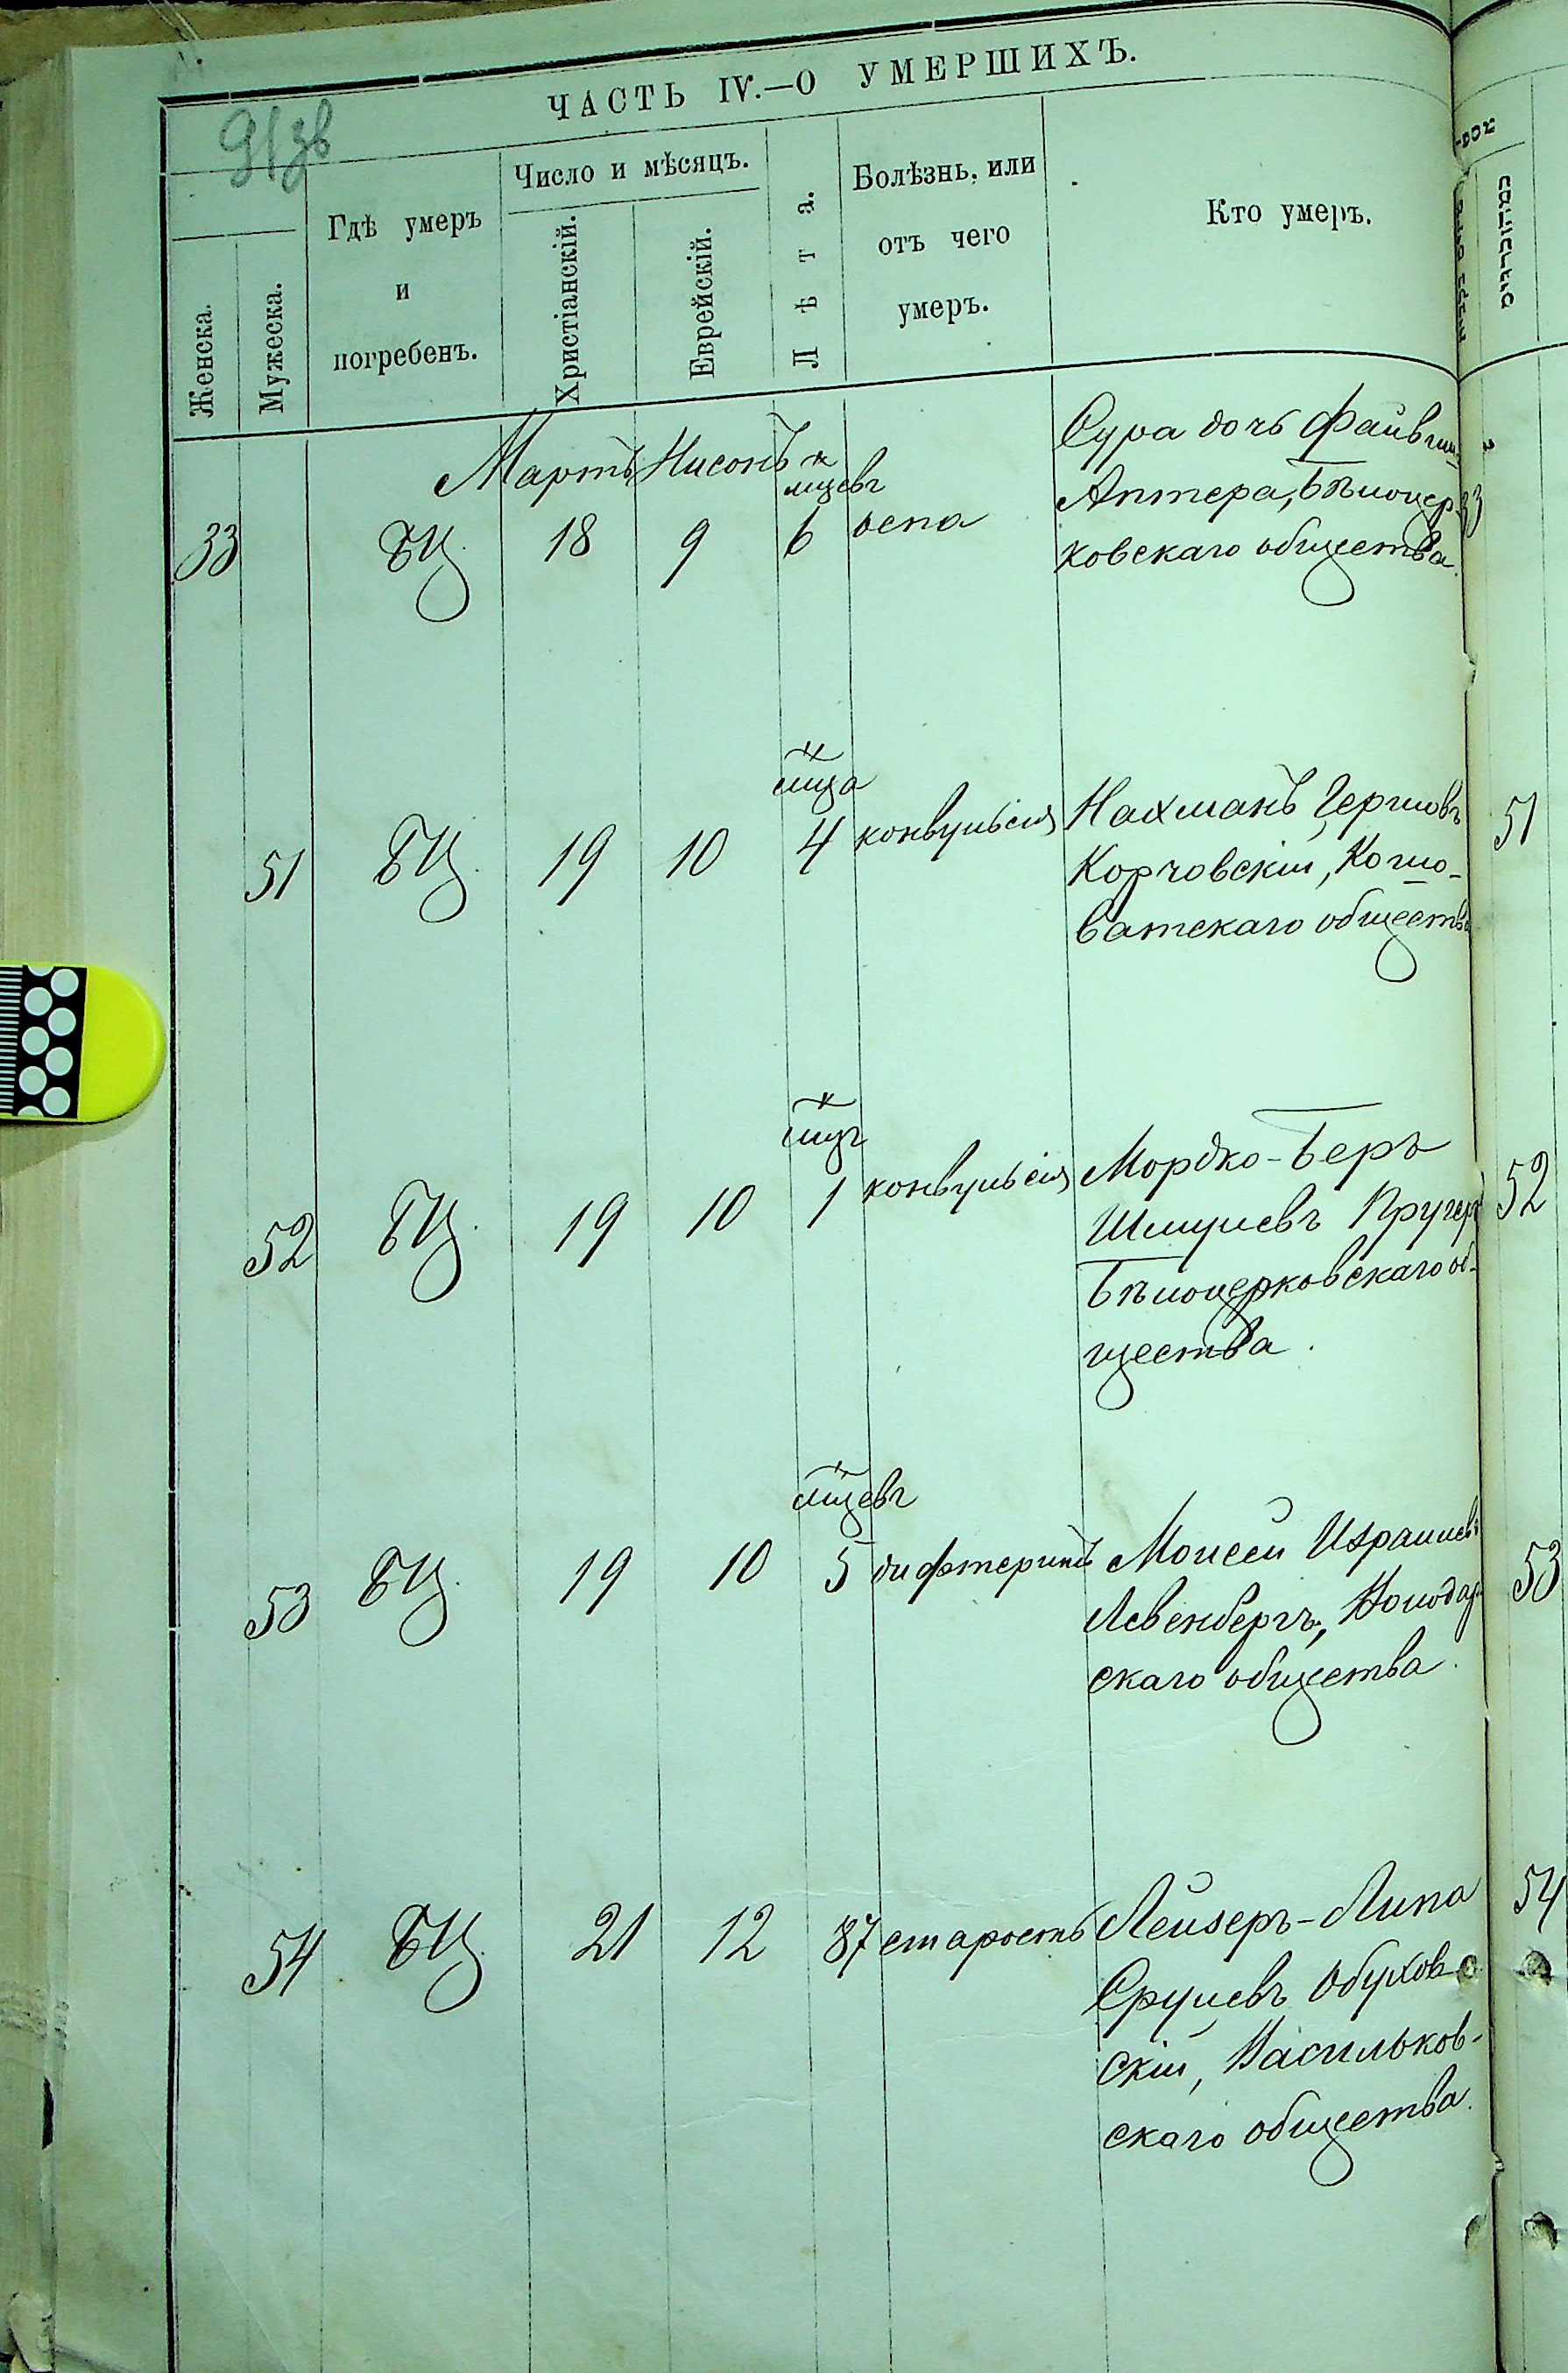 ЧАСТЬ IV.—О УМЕРШИХЪ.
91зв
Женска.
Мужеска.
Гдѣ умеръ
и
погребенъ.
Число и мѣсяцъ.
Христіанскій.
Еврейскій.
Лѣта.
Болѣзнь, или
отъ чего
умеръ.
Кто умеръ.
Мартъ Нисонъ
33 БЦ. 18 9 мцевъ 6 оспа
Сура дочь Файвиша
Аптера, Бѣлоцер-
ковскаго общества.
33
51 БЦ. 19 10 мца 4 конвульсія
Нахманъ Гершовъ
Корчовскій, Кошо-
ватскаго общества
51
52 БЦ. 19 10 мцъ 1 конвульсія
Мордко-Беръ
Шмулевъ Кругеръ
Бѣлоцерковскаго об-
щества.
52
53 БЦ. 19 10 мцевъ 5 дифтеритъ
Моисей Израилевъ
Левенбергъ,
скаго общества.
53
54 БЦ. 21 12 87 старость
Лейзеръ-Липа
Срулевъ Обухов-
скій, Васильков-
скаго общества.
54